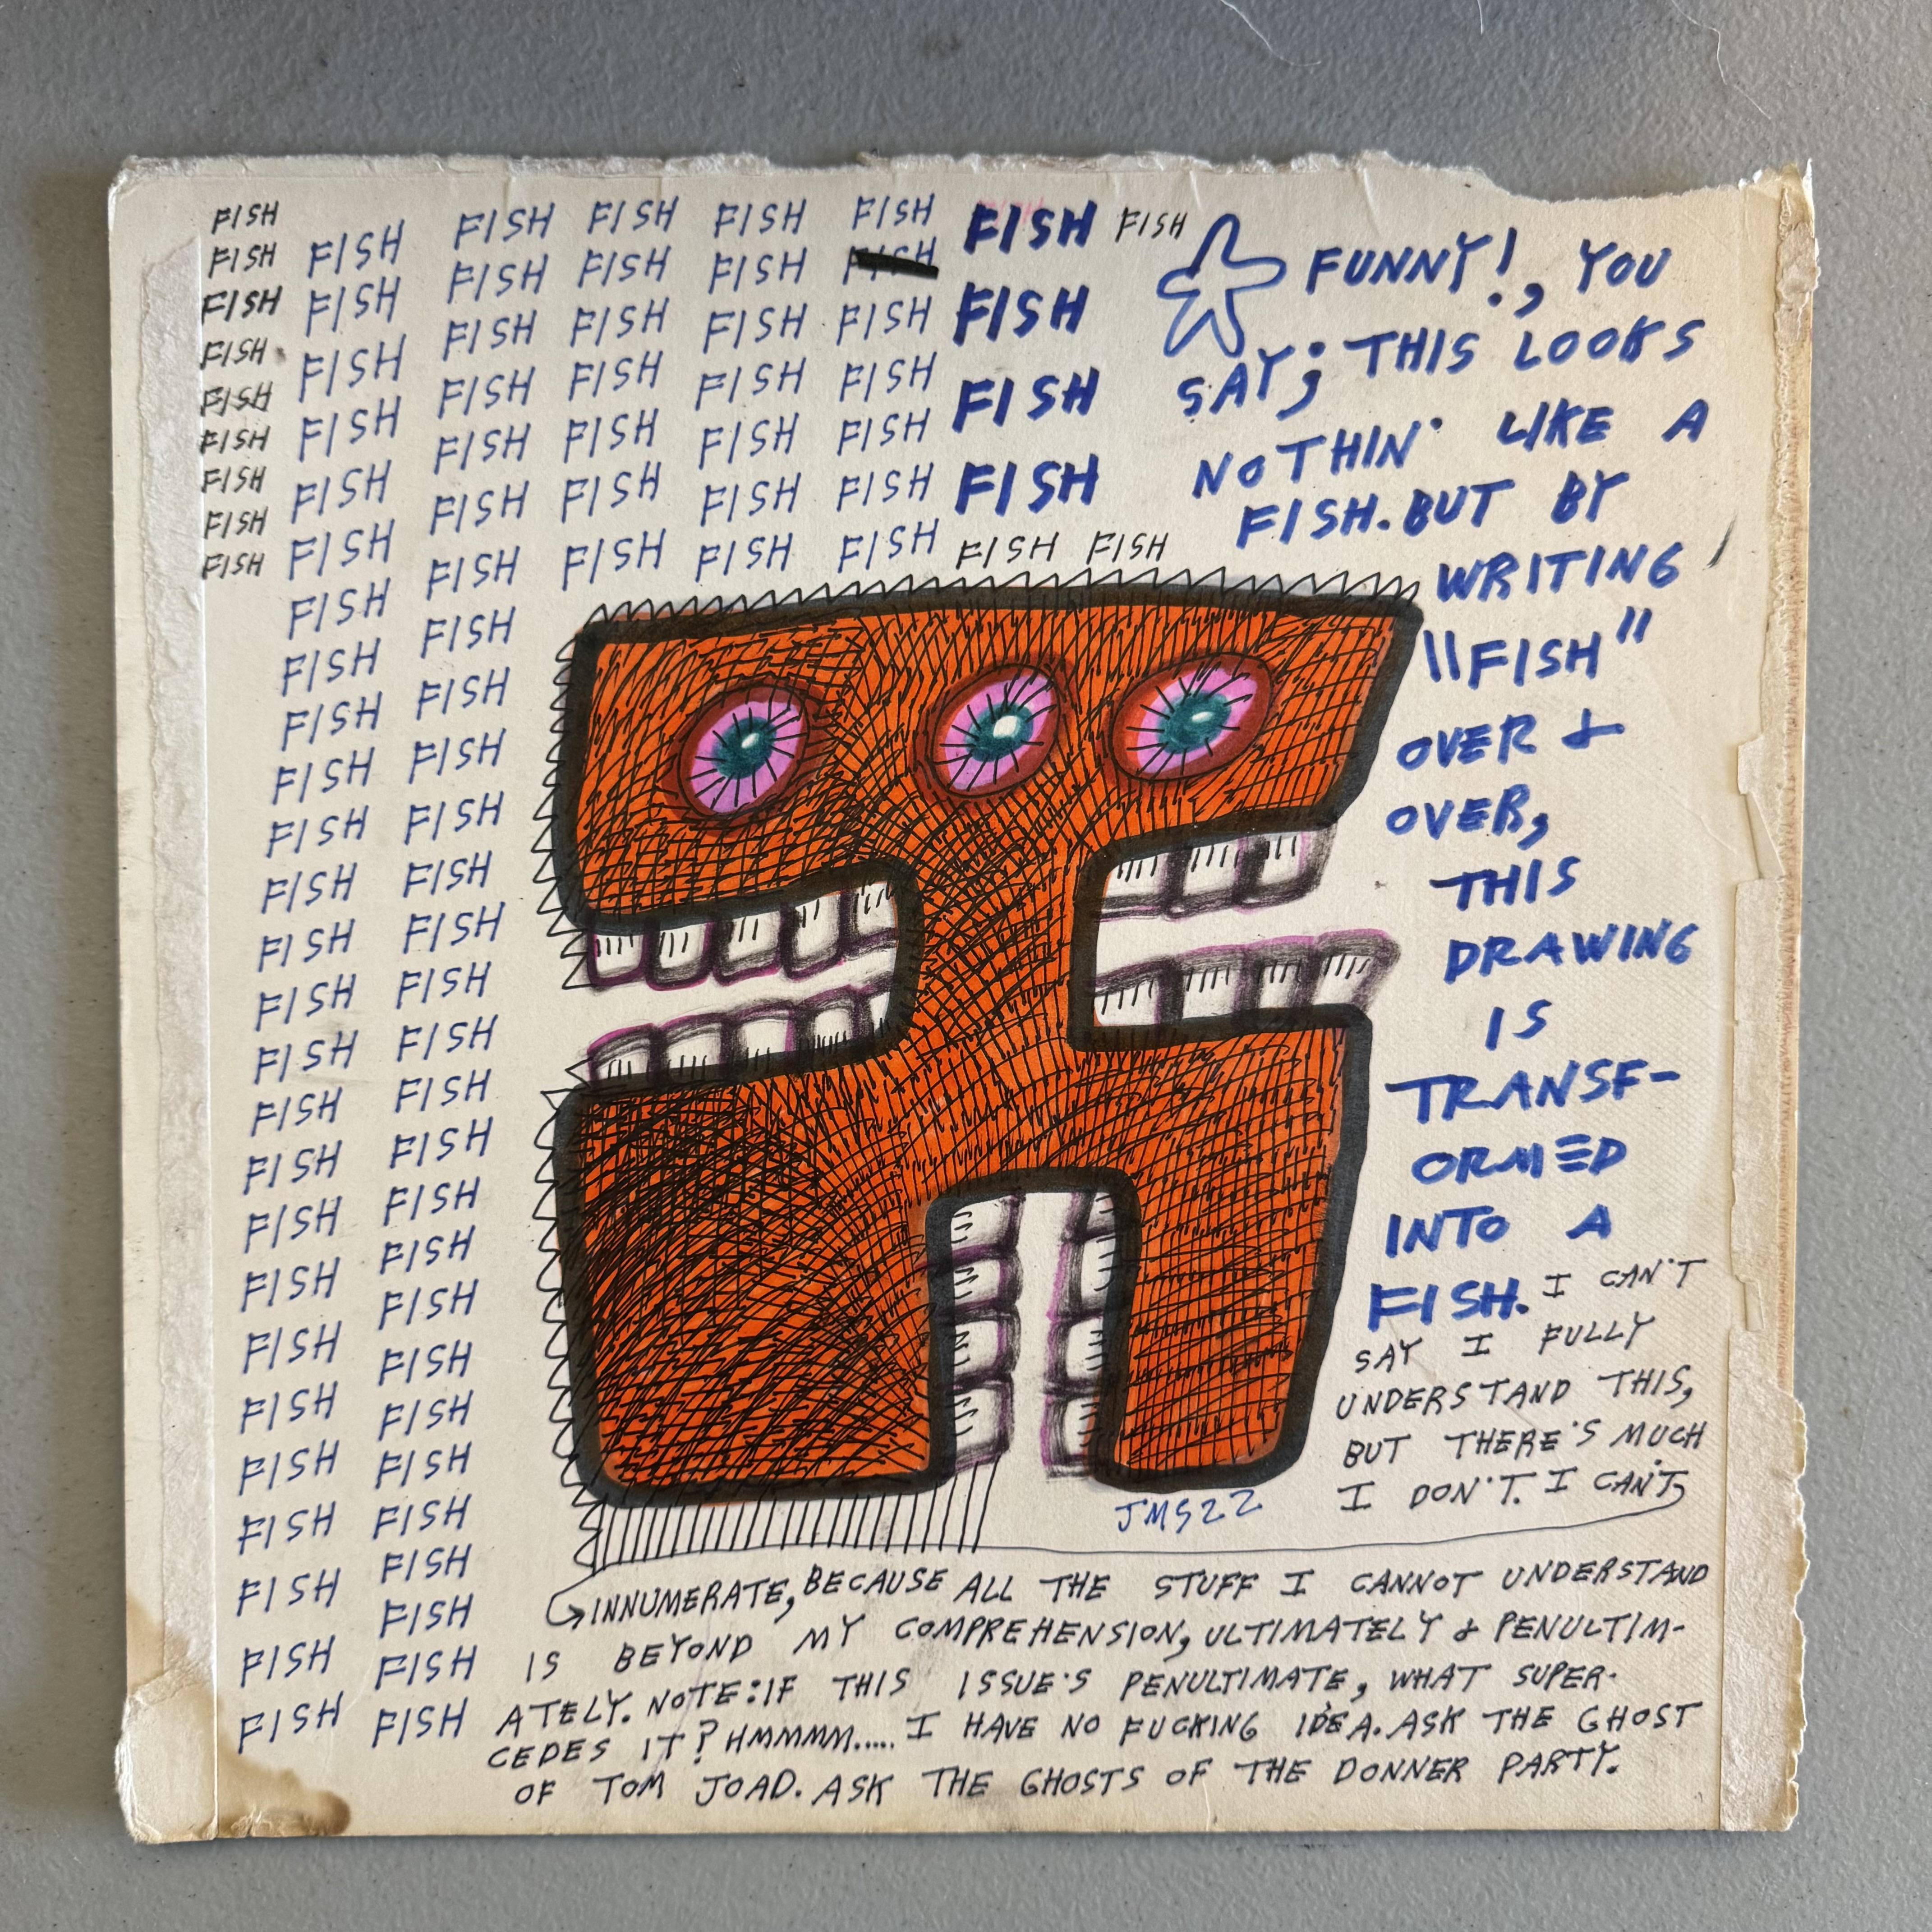 FISH
FISH
FISH
FISH
FISH
FISH
FISH
FISH
FISH
FISH
FISH
FISH
FISH
FISH
FISH
FISH
FISH
FISH
FISH
FISH
FISH
FISH
FISH
FISH
FISH
FISH
FISH
FISH
FISH
FISH
FISH
FISH
FISH
FISH
FISH
FISH
FISH
FISH
FISH
FISH
FISH
FISH
FISH
FISH
FISH
FISH
FISH
FISH
FISH
FISH
FISH
FISH
FISH
FISH
FISH
FISH
FISH
FISH
FISH
FISH
FISH
FISH
FISH
FISH
FISH
FISH
FISH
FISH
FISH
FISH
FISH
FISH
FISH
FISH
FISH
FISH
FISH
FISH
FISH
FISH
FISH
FISH
FISH
FISH
FISH FISH
FISH
FISH
FISH
FISH FISH
FUNNY!, YOU
SAY; THIS LOOKS
NOTHIN' LIKE A
FISH. BUT BY
WRITING
"FISH"
OVER &
OVER,
THIS
DRAWING
IS
TRANSF-
ORMED
INTO A
FISH. I CAN'T
SAY I FULLY
UNDERSTAND THIS,
BUT THERE'S MUCH
I DON'T. I CAN'T
JMS22
INNUMERATE, BECAUSE ALL THE STUFF I CANNOT UNDERSTAND
IS BEYOND MY COMPREHENSION, ULTIMATELY & PENULTIM-
ATELY. NOTE: IF THIS ISSUE'S PENULTIMATE, WHAT SUPER-
CEDES IT? HMMMM..... I HAVE NO FUCKING IDEA. ASK THE GHOST
OF TOM JOAD. ASK THE GHOSTS OF THE DONNER PARTY.